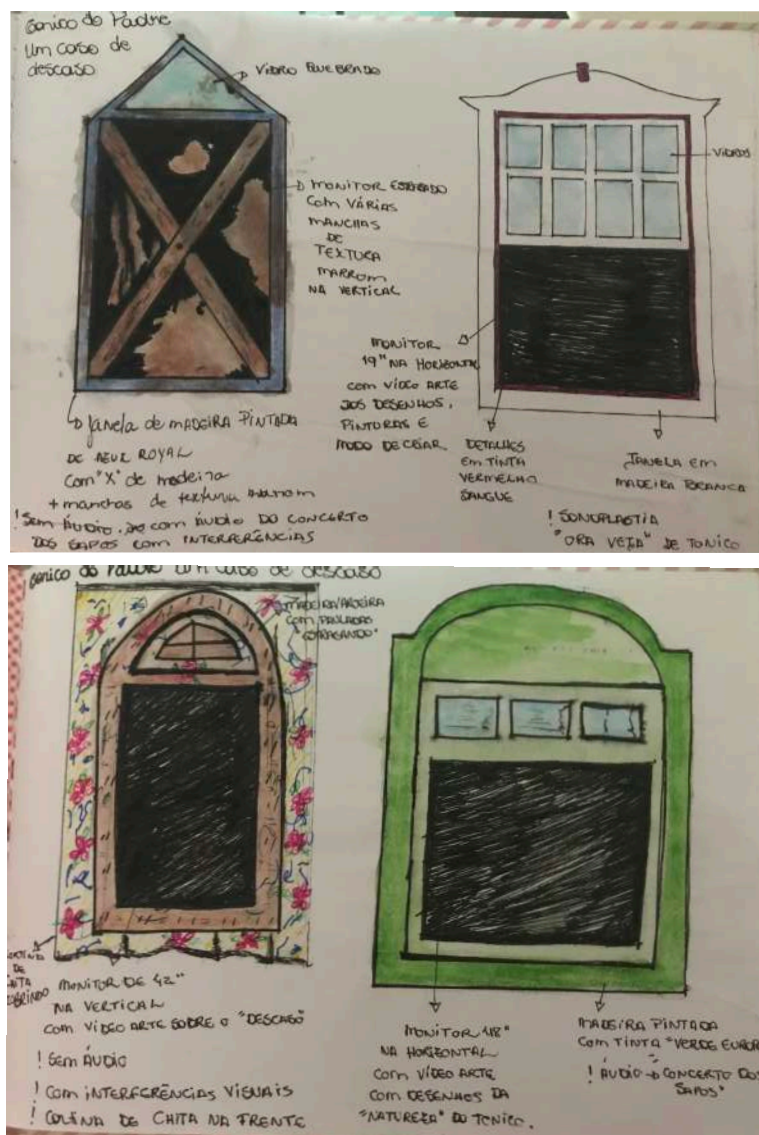 Tonico do Padre
Um caso de
descaso
VIDRO QUEBRADO
MONITOR ESTRAGADO
COM VÁRIAS
MANCHAS
DE
TEXTURA
MARROM
NA VERTICAL
Janela de MADEIRA PINTADA
DE AZUL ROYAL
Com "X" de madeira
+ manchas de textura marrom
! Sem ÁUDIO. com ÁUDIO DO CONCERTO
DOS SAPOS com INTERFERÊNCIAS
VIDROS
MONITOR
19" NA HORIZONTAL
com VÍDEO ARTE
DOS DESENHOS,
PINTURAS E
MODO DE CRIAR
DETALHES
EM TINTA
VERMELHO
SANGUE
JANELA EM
MADEIRA BRANCA
! SONOPLASTIA
"ORA VEJA" DE TONICO
Tonico do Padre um caso de descaso
MADEIRA
COM PAULADAS
DE
CHITA
COBRINDO
MONITOR DE 42"
NA VERTICAL
COM VIDEO ARTE SOBRE O "DESCASO"
! Sem ÁUDIO
! Com INTERFERÊNCIAS VISUAIS
! DE CHITA NA FRENTE
MONITOR
NA HORIZONTAL
COM VÍDEO ARTE
COM DESENHOS DA
"NATUREZA" DO TONICO.
MADEIRA PINTADA
Com TINTA "VERDE
! ÁUDIO → CONCERTO DOS
SAPOS"